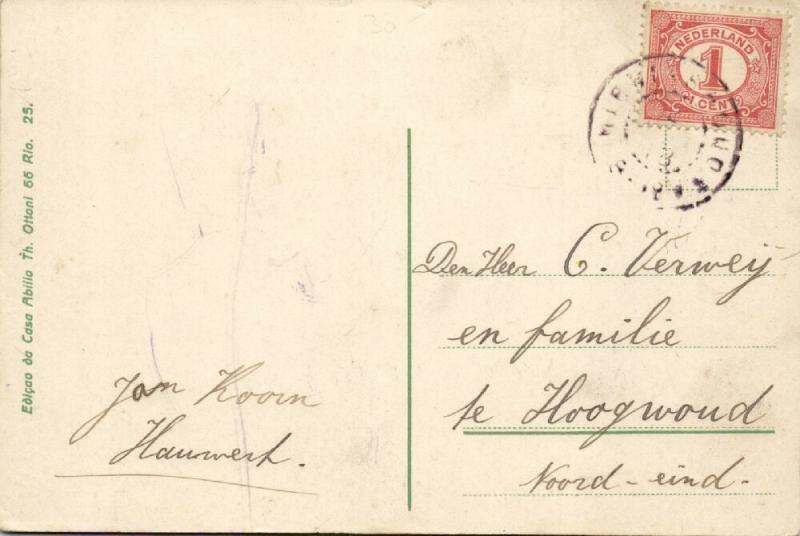 Edição da Casa Abilio Th. Ottoni 66 Rio. 25.
Jan Koorn
Hauwert.
NEDERLAND
1
CENT
Den Heer C. Verweij
en familie
te Hoogwoud
Noord-eind-